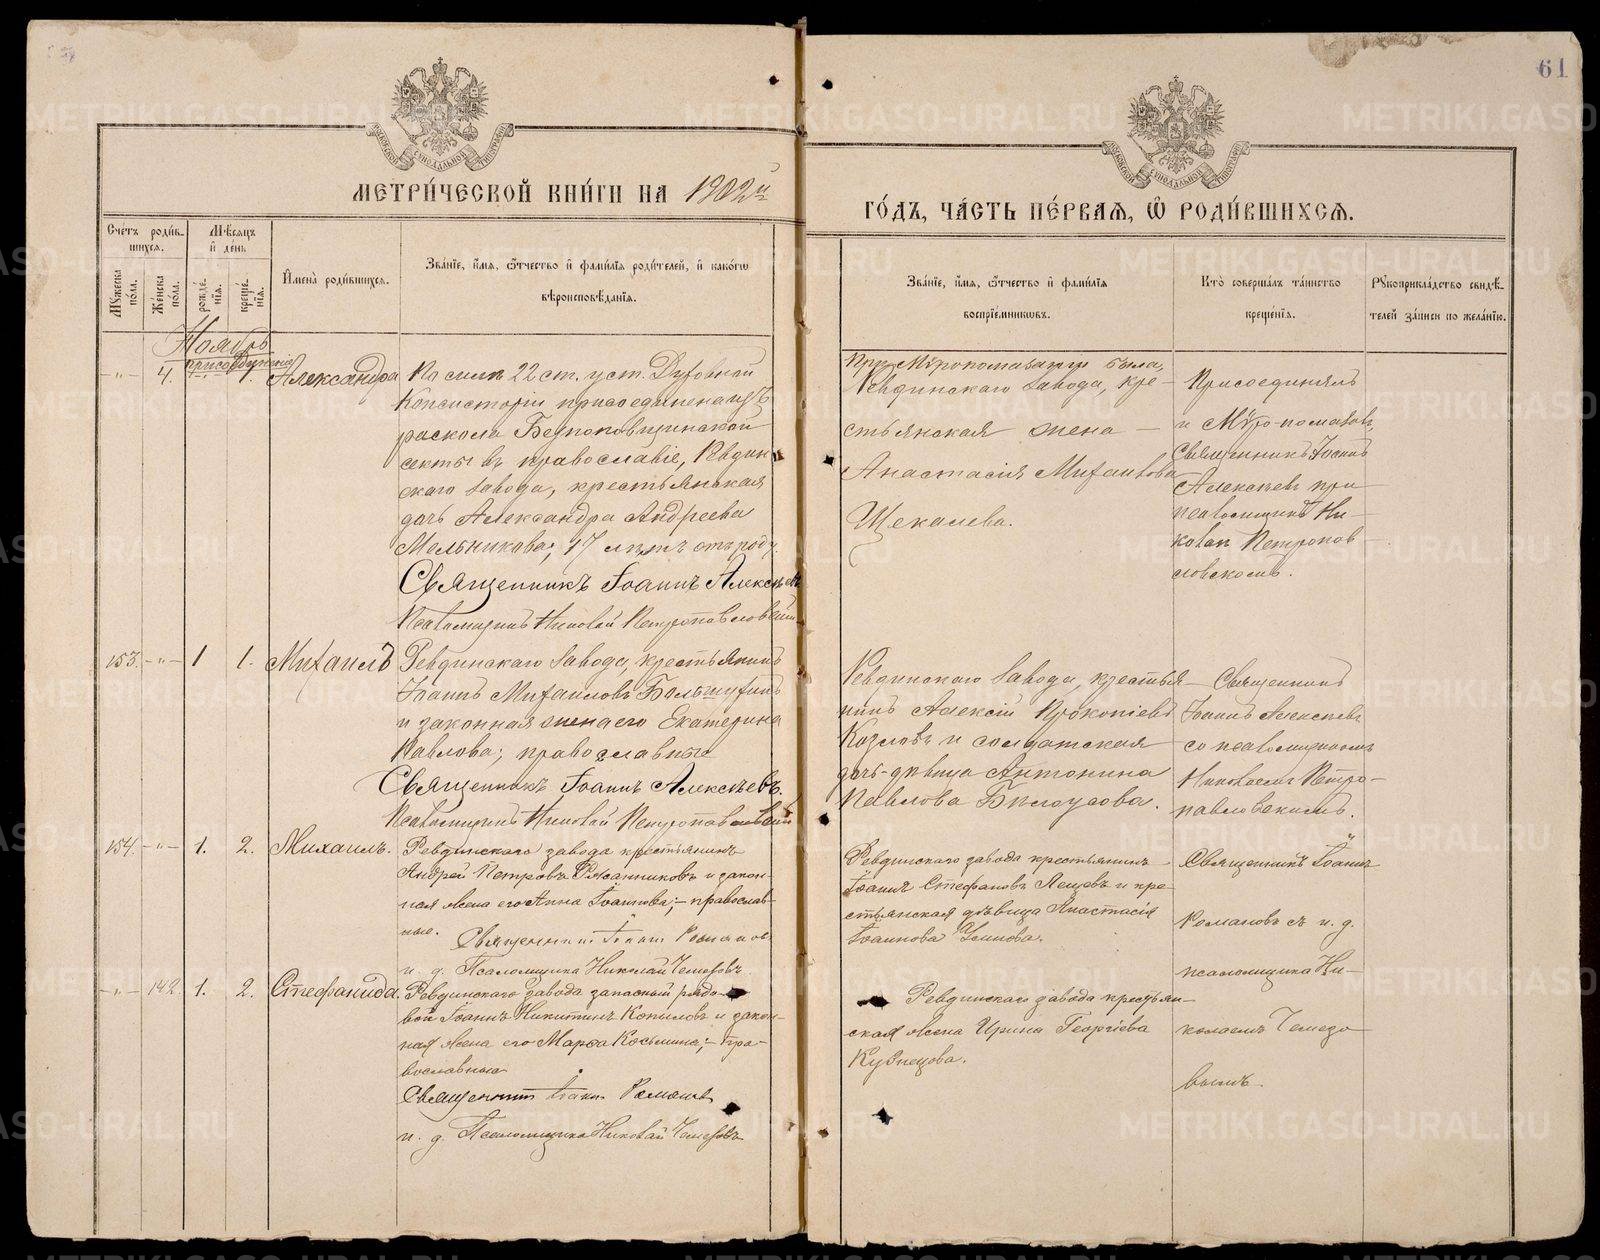 61
МОСКОВСКОЙ СѴНОДАЛЬНОЙ ТИПОГРАФІИ
МЕТРИ́ЧЕСКОЙ КНИ́ГИ НА 1902й
МОСКОВСКОЙ СѴНОДАЛЬНОЙ ТИПОГРАФІИ
ГО́ДЪ, ЧА́СТЬ ПЕ́РВАЯ, Ѽ РОДИ́ВШИХСЯ.
Сче́тъ роди́в-
шихся.
Му́жеска по́ла.
Же́нска по́ла.
Мѣ́сяцъ
и҆ де́нь
рожде́-
нїя.
креще́-
нїя.
И҆мена̀ роди́вшихся.
Зва́нїе, и҆́мя, ѻ҆́тчество и҆ фами́лїя роди́телей, и҆ како́гѡ
вѣроисповѣ́данїя.
Зва́нїе, и҆́мя, ѻ҆́тчество и҆ фами́лїя
воспрїе́мникѡвъ.
Кто̀ соверша́лъ та́инство
креще́нїя.
Рꙋкоприкла́дство свидѣ́-
телей за́писи по жела́нїю.
Ноябрь
присоединенія
-„- 4. „ 1. Александра
По силѣ 22 ст. уст. Духовной
Консисторіи присоединена изъ
раскола Безпоповщинской
секты въ православіе, Ревдин-
скаго завода, крестьянская
дочь Александра Андреева
Мельникова; 17 лѣтъ отъ роду.
Священникъ Іоаннъ Алексѣевъ
Псаломщикъ Николай Петропавловскій
При Мѵропомазаніи была,
Ревдинскаго завода, кре-
стьянская жена —
Анастасія Михаилова
Щекалева.
Присоединялъ
и Мѵропомазалъ,
Священникъ Іоаннъ
Алексѣевъ при
псаломщикѣ Ни-
колаѣ Петропав-
ловскомъ.
153. -„- 1 1. Михаилъ
Ревдинскаго завода, крестьянинъ
Іоаннъ Михаиловъ Большухинъ
и законная жена его Екатерина
Павлова; православные
Священникъ Іоаннъ Алексѣевъ.
Псаломщикъ Николай Петропавловскій
Ревдинскаго завода, крестья-
нинъ Алексій Прокопіевъ
Козловъ и солдатская
дочь-дѣвица Антонина
Павлова Бѣлоусова.
Священникъ
Іоаннъ Алексѣевъ
со псаломщикомъ
Николаемъ Петро-
павловскимъ.
154. -„- 1. 2. Михаилъ.
Ревдинскаго завода крестьянинъ
Андрей Петровъ и закон-
ная жена его Анна Іоаннова;— православ-
ные.
Священникъ Іоаннъ Романовъ
и. д. Псаломщика Николай Чемезовъ
Ревдинскаго завода крестьянинъ
Іоаннъ Стефановъ Ялцевъ и кре-
стьянская дѣвица Анастасія
Іоаннова
Священникъ Іоаннъ
Романовъ съ и. д.
псаломщика Ни-
колаемъ Чемезо-
вымъ.
-„- 142. 1. 2. Стефанида.
Ревдинскаго завода запасный рядо-
вой Іоаннъ Никитинъ Копыловъ и закон-
ная жена его Марѳа Косьмина;— пра-
вославные
Священникъ Іоаннъ Романовъ
и. д. Псаломщика Николай Чемезовъ
Ревдинскаго завода крестьян-
ская жена Ирина Георгіева
Кузнецова.
METRIKI.GASO-URAL.RU